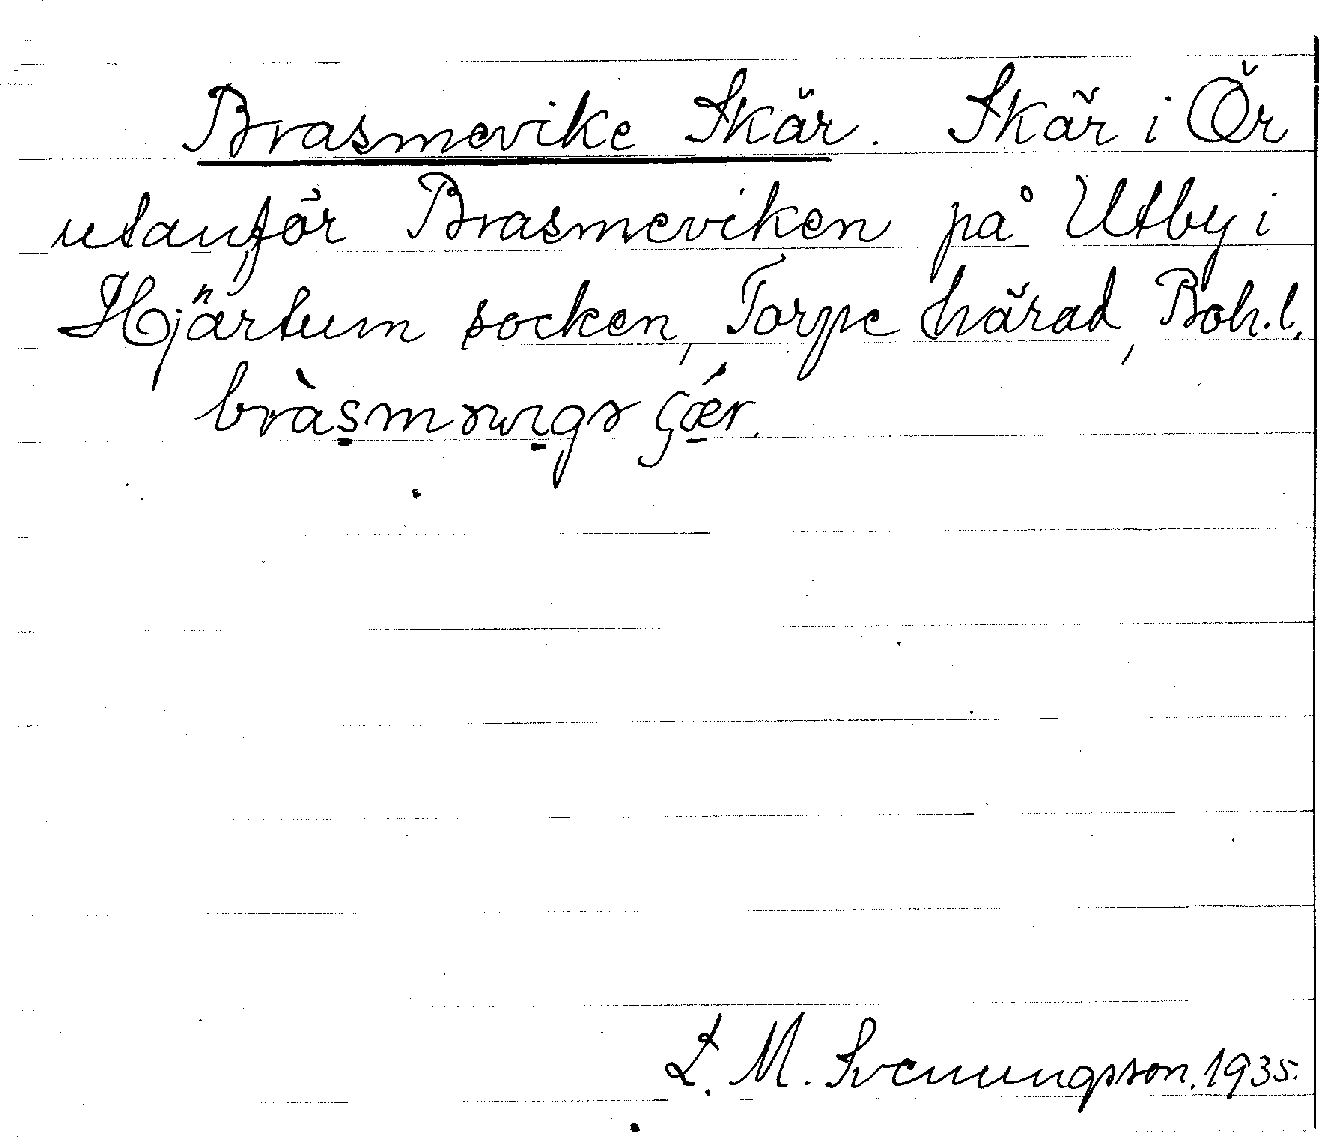 Brasmevike Skär. Skär i Ör
utanför Brasmeviken på Utby i
Hjärtum socken, Torpe härad, Boh.l.
bràs̱mɤvı̱gɤ çǽ̱r.
L. M. Svenungsson. 1935.